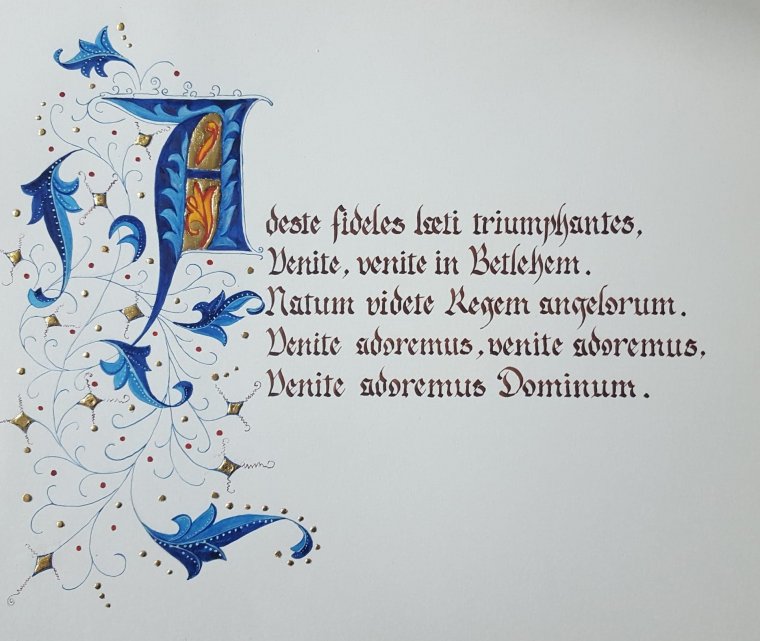 Adeste fideles læti triumphantes,
Venite, venite in Betlehem.
Natum videte Regem angelorum.
Venite adoremus, venite adoremus,
Venite adoremus Dominum.